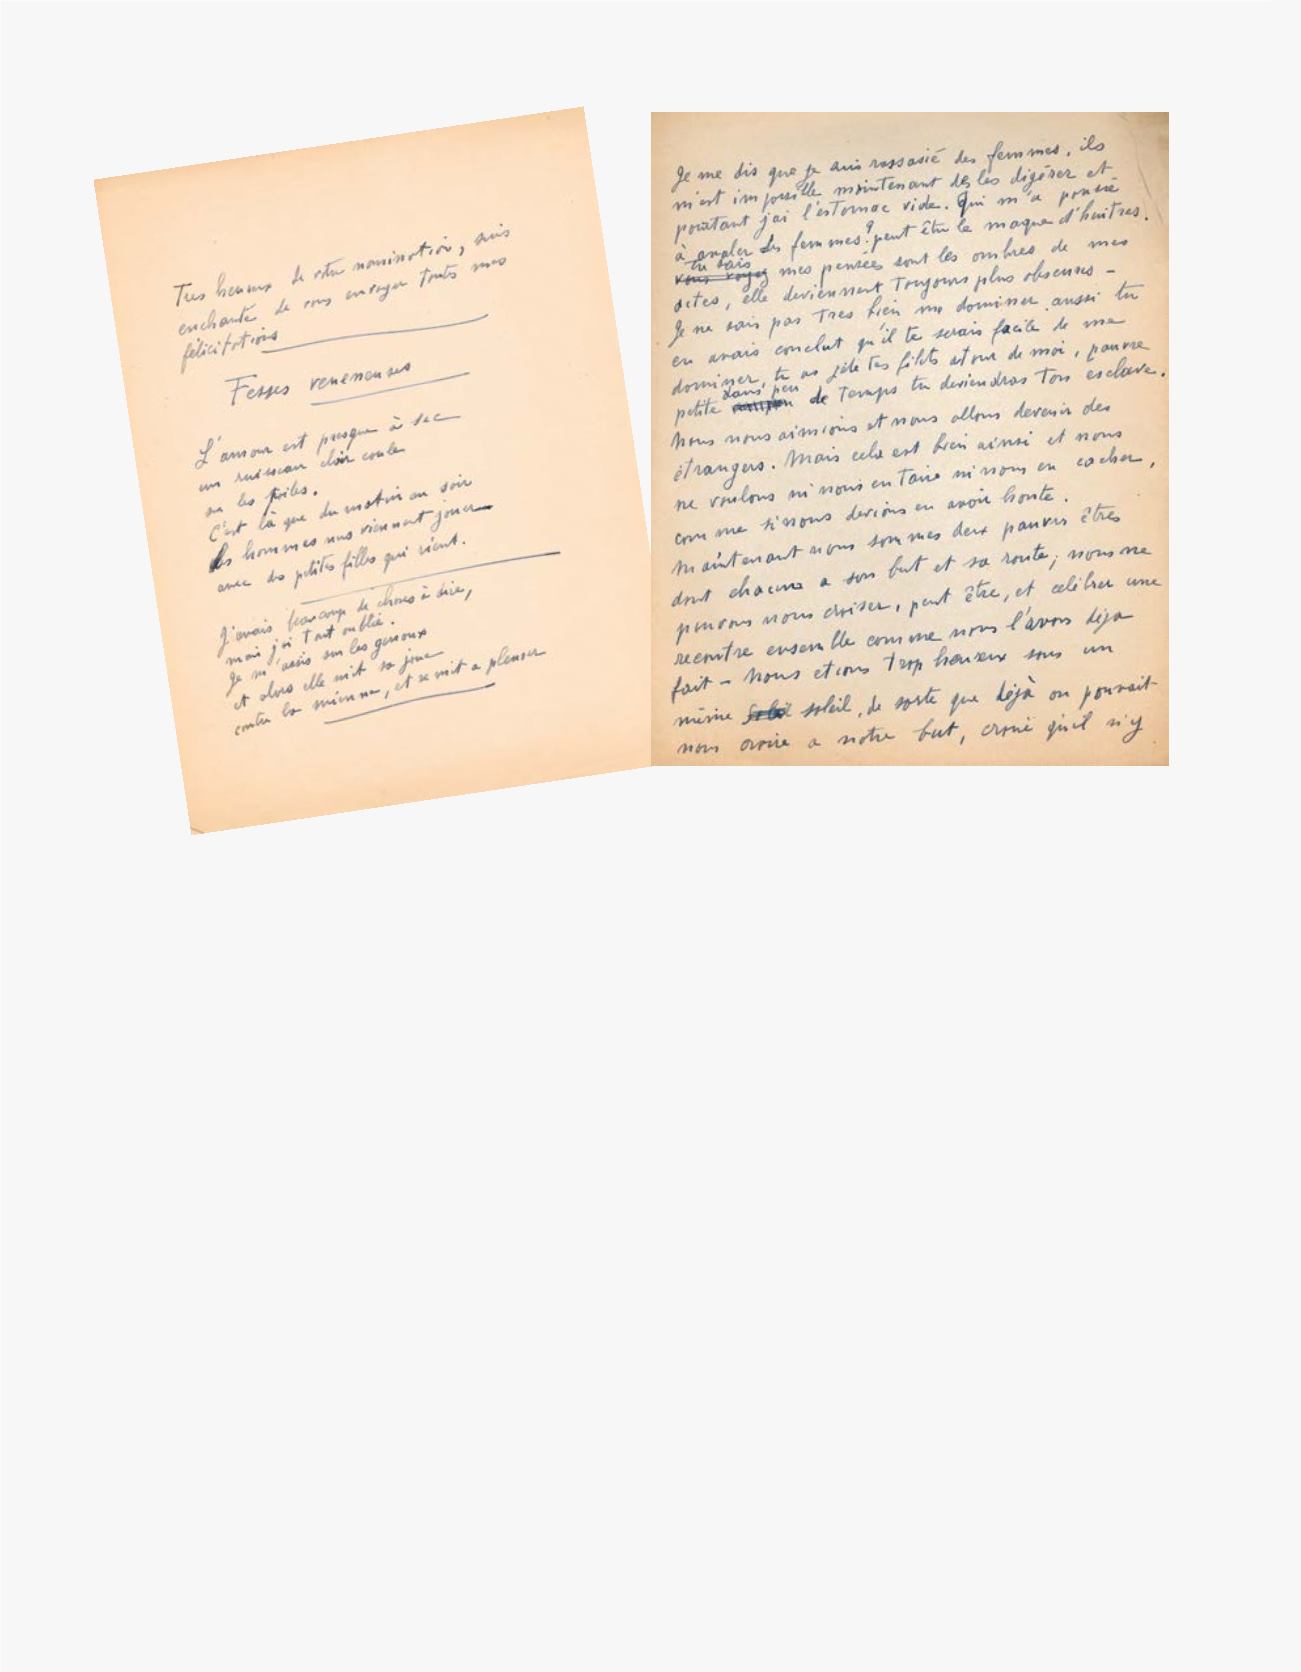 Tres heureux de votre nomination, suis
enchanté de vous envoyer toutes mes
félicitations
Fesses veneneuses
L'amour est presque à sec
un ruisseau clair coule
sur les
C'est là que du matin au soir
les hommes nus viennent jouer
avec des petites filles qui rient.
J'avais beaucoup de choses à dire,
mais j'ai tout oublié.
Je m'assis sur les genoux
et alors elle mit sa joue
contre la mienne, et se mit a pleurer
Je me dis que je suis rassasié des femmes, ils
m'est impossible maintenant de les digérer et
pourtant j'ai l'estomac vide. Qui m'a poussé
à avaler des femmes? peut être le manque d'huitres.
tu sais
vous voyez mes pensées sont les ombres de mes
actes, elle deviennent toujours plus obscures -
Je ne sais pas tres bien me dominer aussi tu
en avais conclut qu'il te serais facile de me
dominer, tu as jeté tes filets autour de moi, pauvre
dans peu
petite de temps tu deviendras ton esclave.
Nous nous aimions et nous allons devenir des
étrangers. Mais cela est bien ainsi et nous
ne voulons ni nous en taire ni nous en cacher,
comme si nous devions en avoir honte.
Maintenant nous sommes deux pauvres êtres
dont chacune a son but et sa route; nous ne
pouvons nous croiser, peut être, et célébrer une
recontre ensemble comme nous l'avons déja
fait - Nous etions trop heureux sous un
même soleil, de sorte que déjà on pouvait
nous croire a notre but, croire qu'il n'y